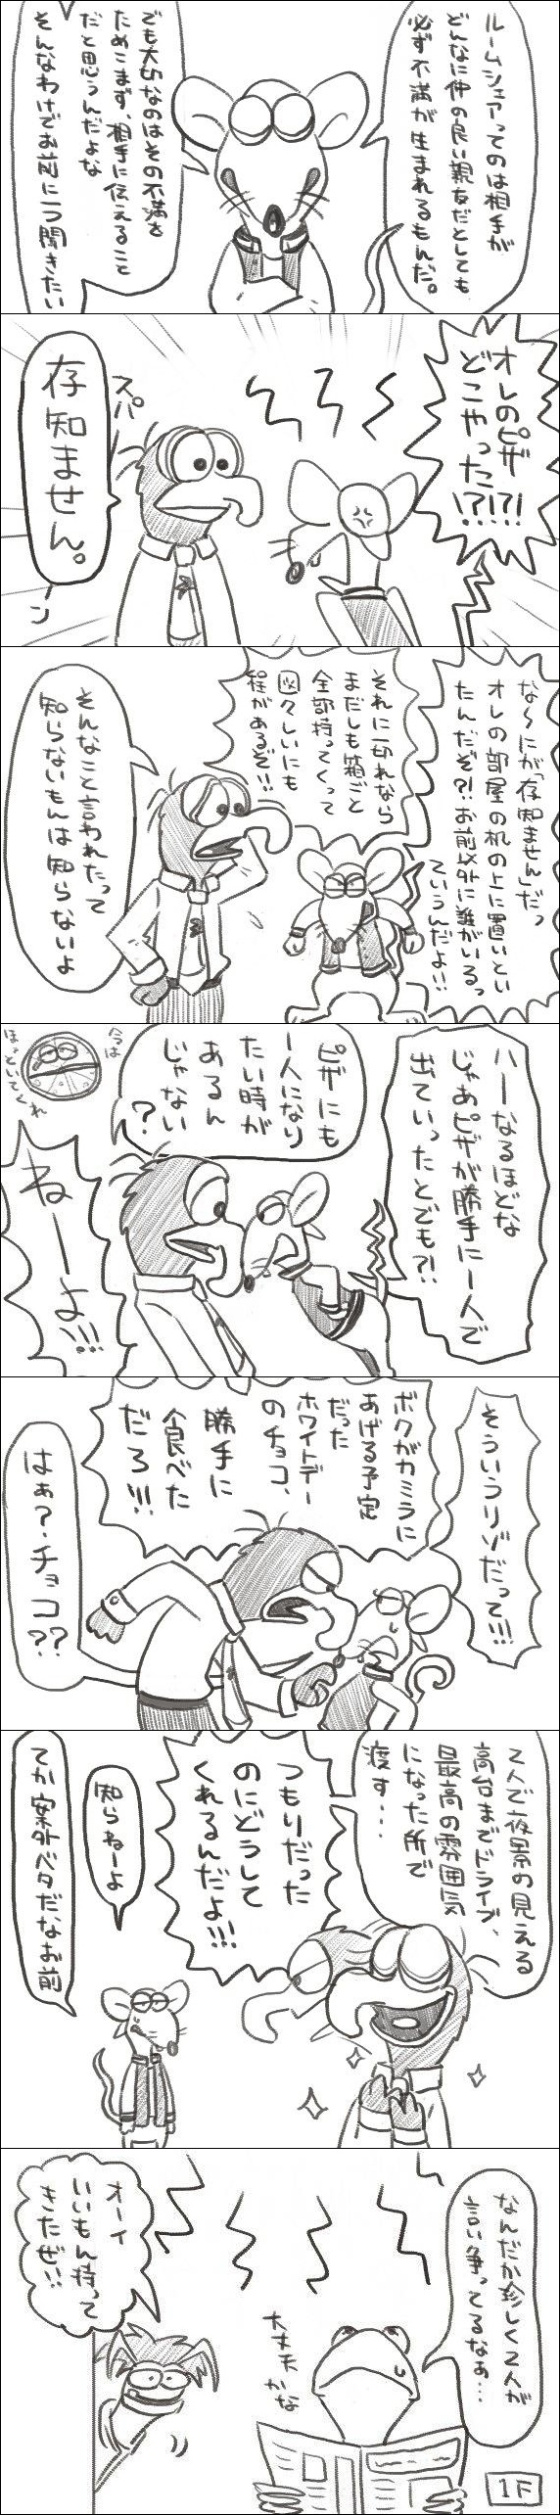 ルームシェアってのは相手が
どんなに仲の良い親友だとしても
必ず不満が生まれるもんだ。
でも大切なのはその不満を
ためこまず、相手に伝えること
だと思うんだよな
そんなわけでお前に一つ聞きたい
オレのピザ
どこやった!?!?!
スパーン
存知ません。
な〜にが「存知ません」だっ
オレの部屋の机の上に置いとい
たんだぞ?!お前以外に誰がいるっ
ていうんだよ!!
それに一切れなら
まだしも箱ごと
全部持ってくって
図々しいにも
程があるぞ!!
そんなこと言われたって
知らないもんは知らないよ
ハーなるほどな
じゃあピザが勝手に一人で
出ていったとでも?!
ピザにも
一人になり
たい時が
あるん
じゃない
?
今は
ほっといてくれ
ねーよ!!!
そういうリゾだって!!!
ボクがカミラに
あげる予定
だった
ホワイトデー
のチョコ、
勝手に
食べた
だろ!!!
はぁ?チョコ??
2人で夜景の見える
高台までドライブ、
最高の雰囲気
になった所で
渡す…
つもりだった
のにどうして
くれるんだよ!!!
知らねーよ
てか案外ベタだなお前
なんだか珍しく2人が
言い争ってるなぁ…
大丈夫
かな
オーイ
いいもん持って
きたぜ!!
1F